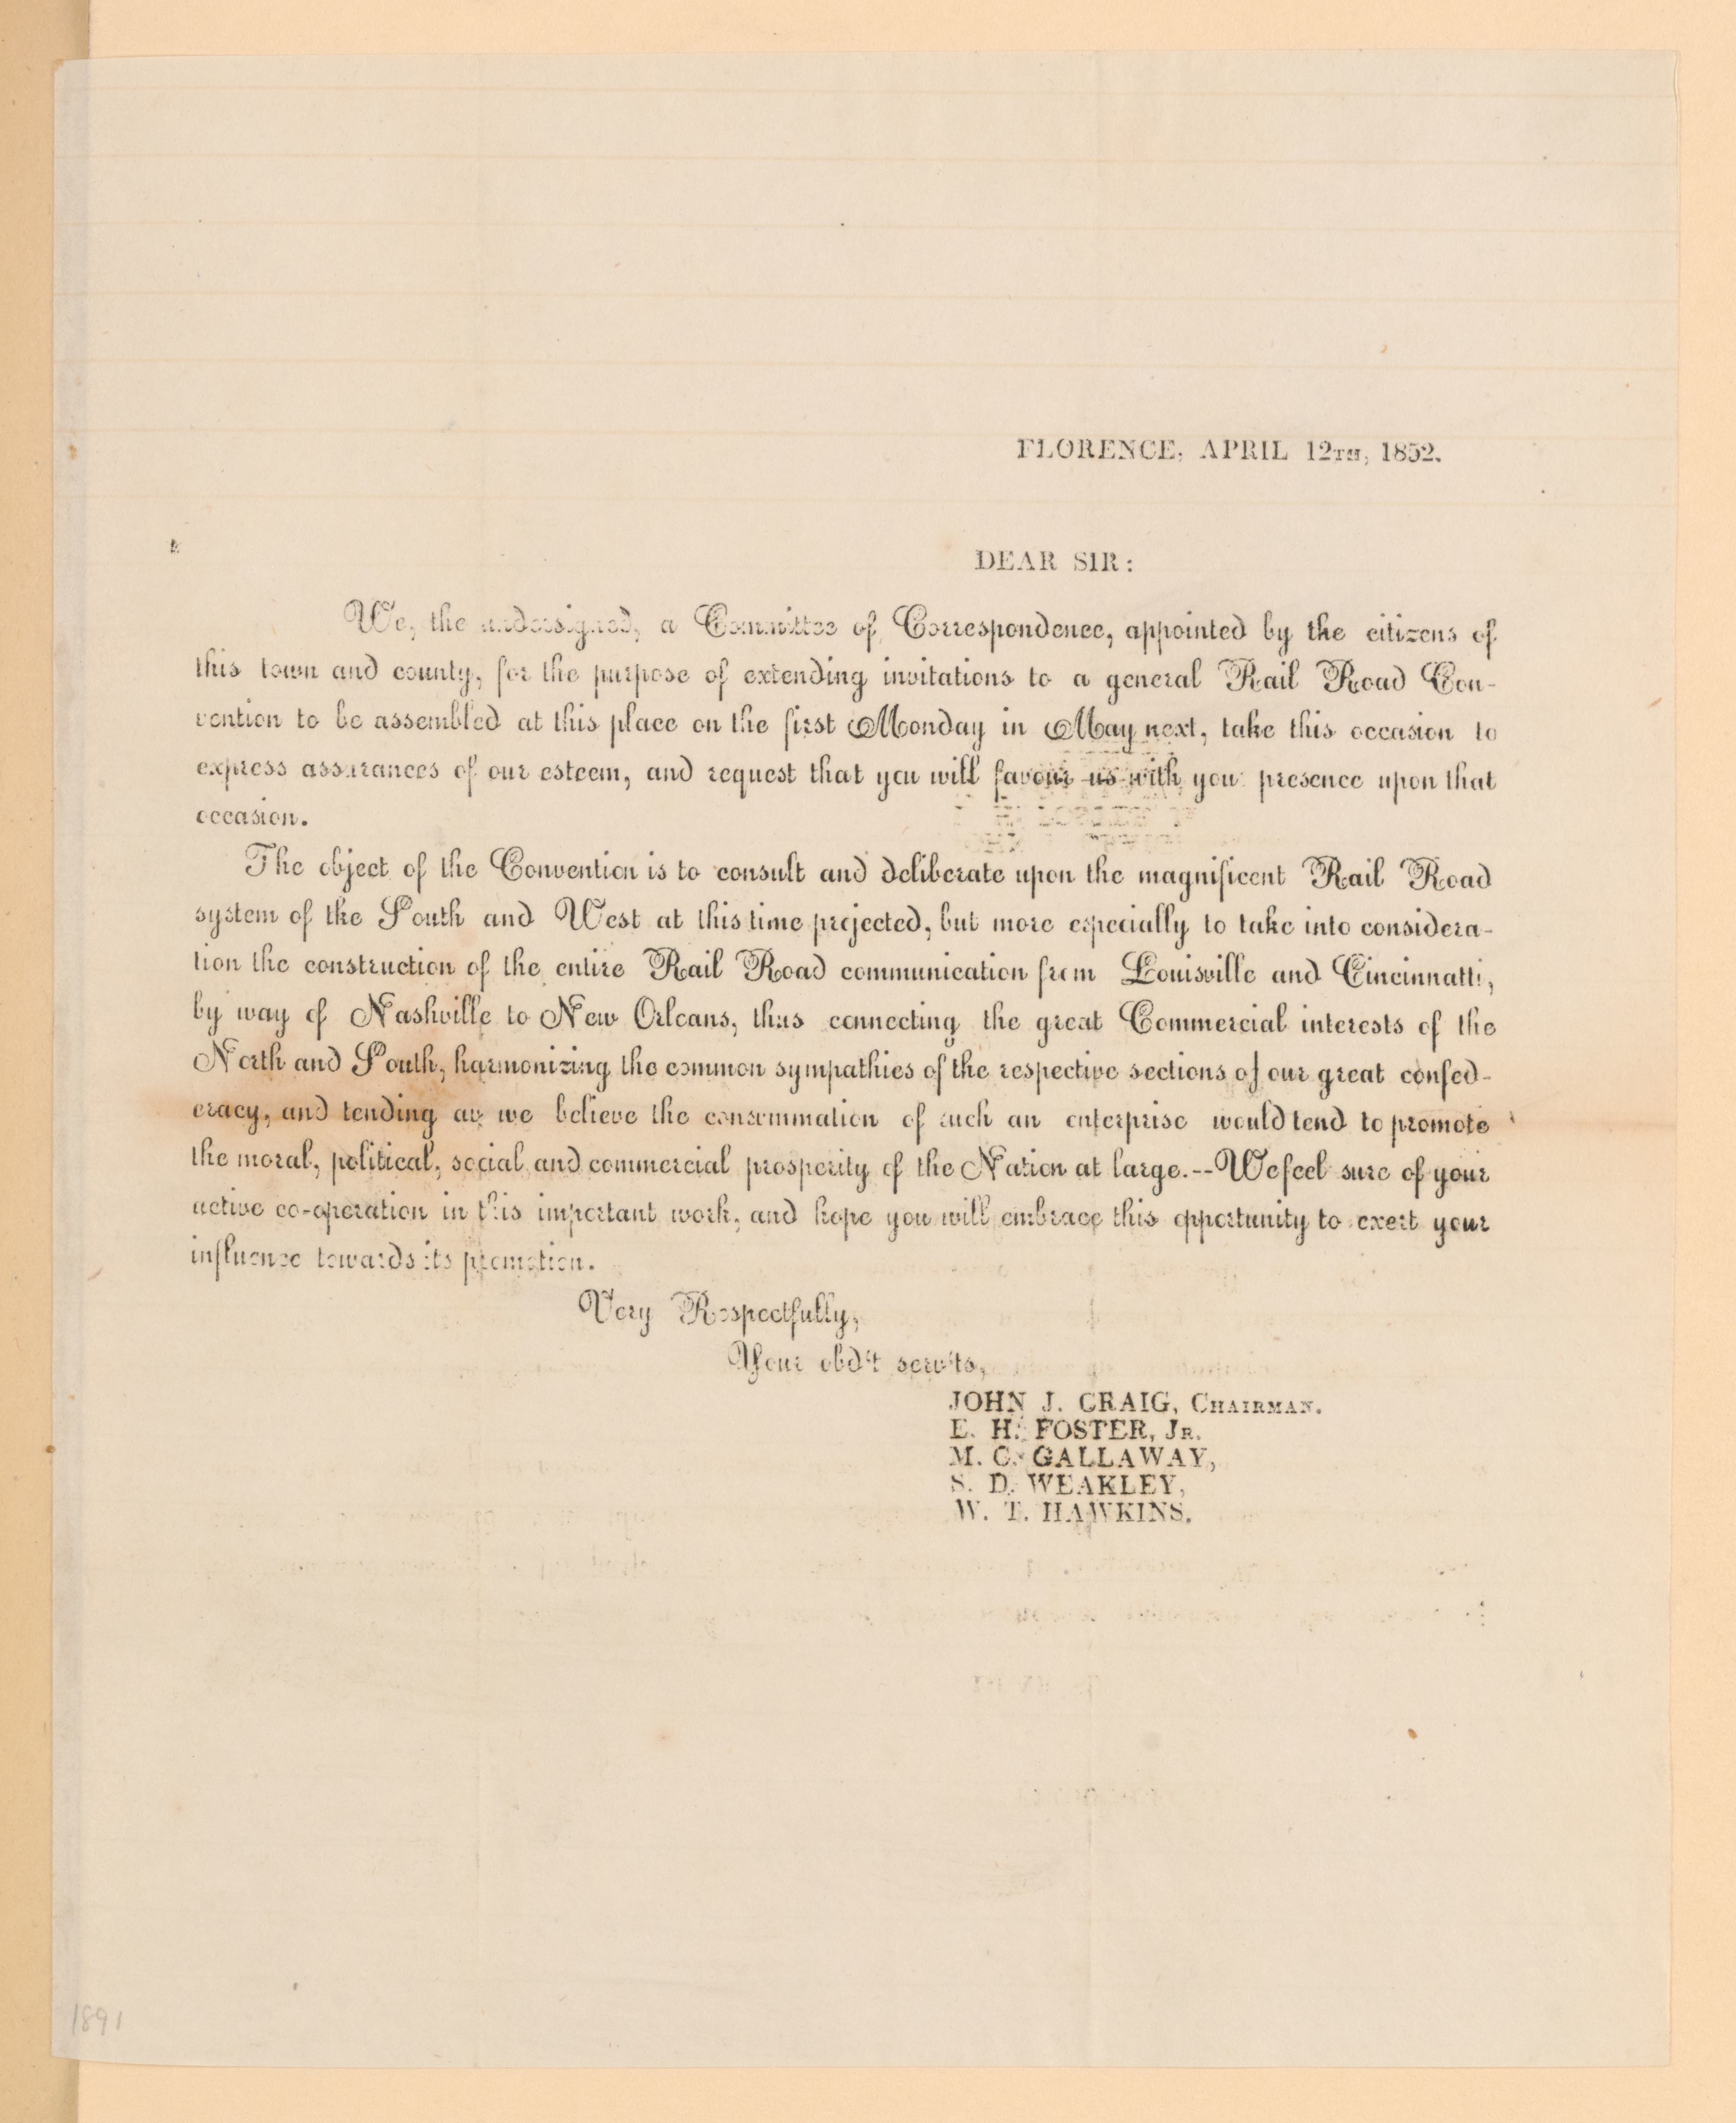 FLORENCE, APRIL 12TH, 1852.
DEAR SIR:
We, the undersigned, a Committee of Correspondence, appointed by the citizens of
this town and county, for the purpose of extending invitations to a general Rail Road Con-
vention to be assembled at this place on the first Monday in May next, take this occasion to
express assurances of our esteem, and request that you will favour us with your presence upon that
occasion.
The object of the Convention is to consult and deliberate upon the magnificent Rail Road
system of the South and West at this time projected, but more especially to take into considera-
tion the construction of the entire Rail Road communication from Louisville and Cincinnatti,
by way of Nashville to New Orleans, thus connecting the great Commercial interests of the
North and South, harmonizing the common sympathies of the respective sections of our great confed-
eracy, and tending as we believe the consummation of such an enterprise would tend to promote
the moral, political, social and commercial prosperity of the Nation at large.--We feel sure of your
active co-operation in this important work, and hope you will embrace this opportunity to exert your
influence towards its promotion.
Very Respectfully,
Your obd't serv'ts,
JOHN J. CRAIG, CHAIRMAN.
E. H. FOSTER, JR.
M. C. GALLAWAY,
S. D. WEAKLEY,
W. T. HAWKINS.
1891